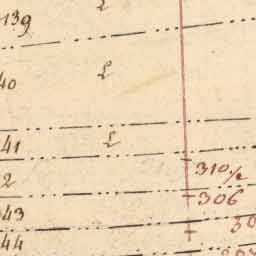 139 L
40 L
41 L
2 310½
43 306
44 30